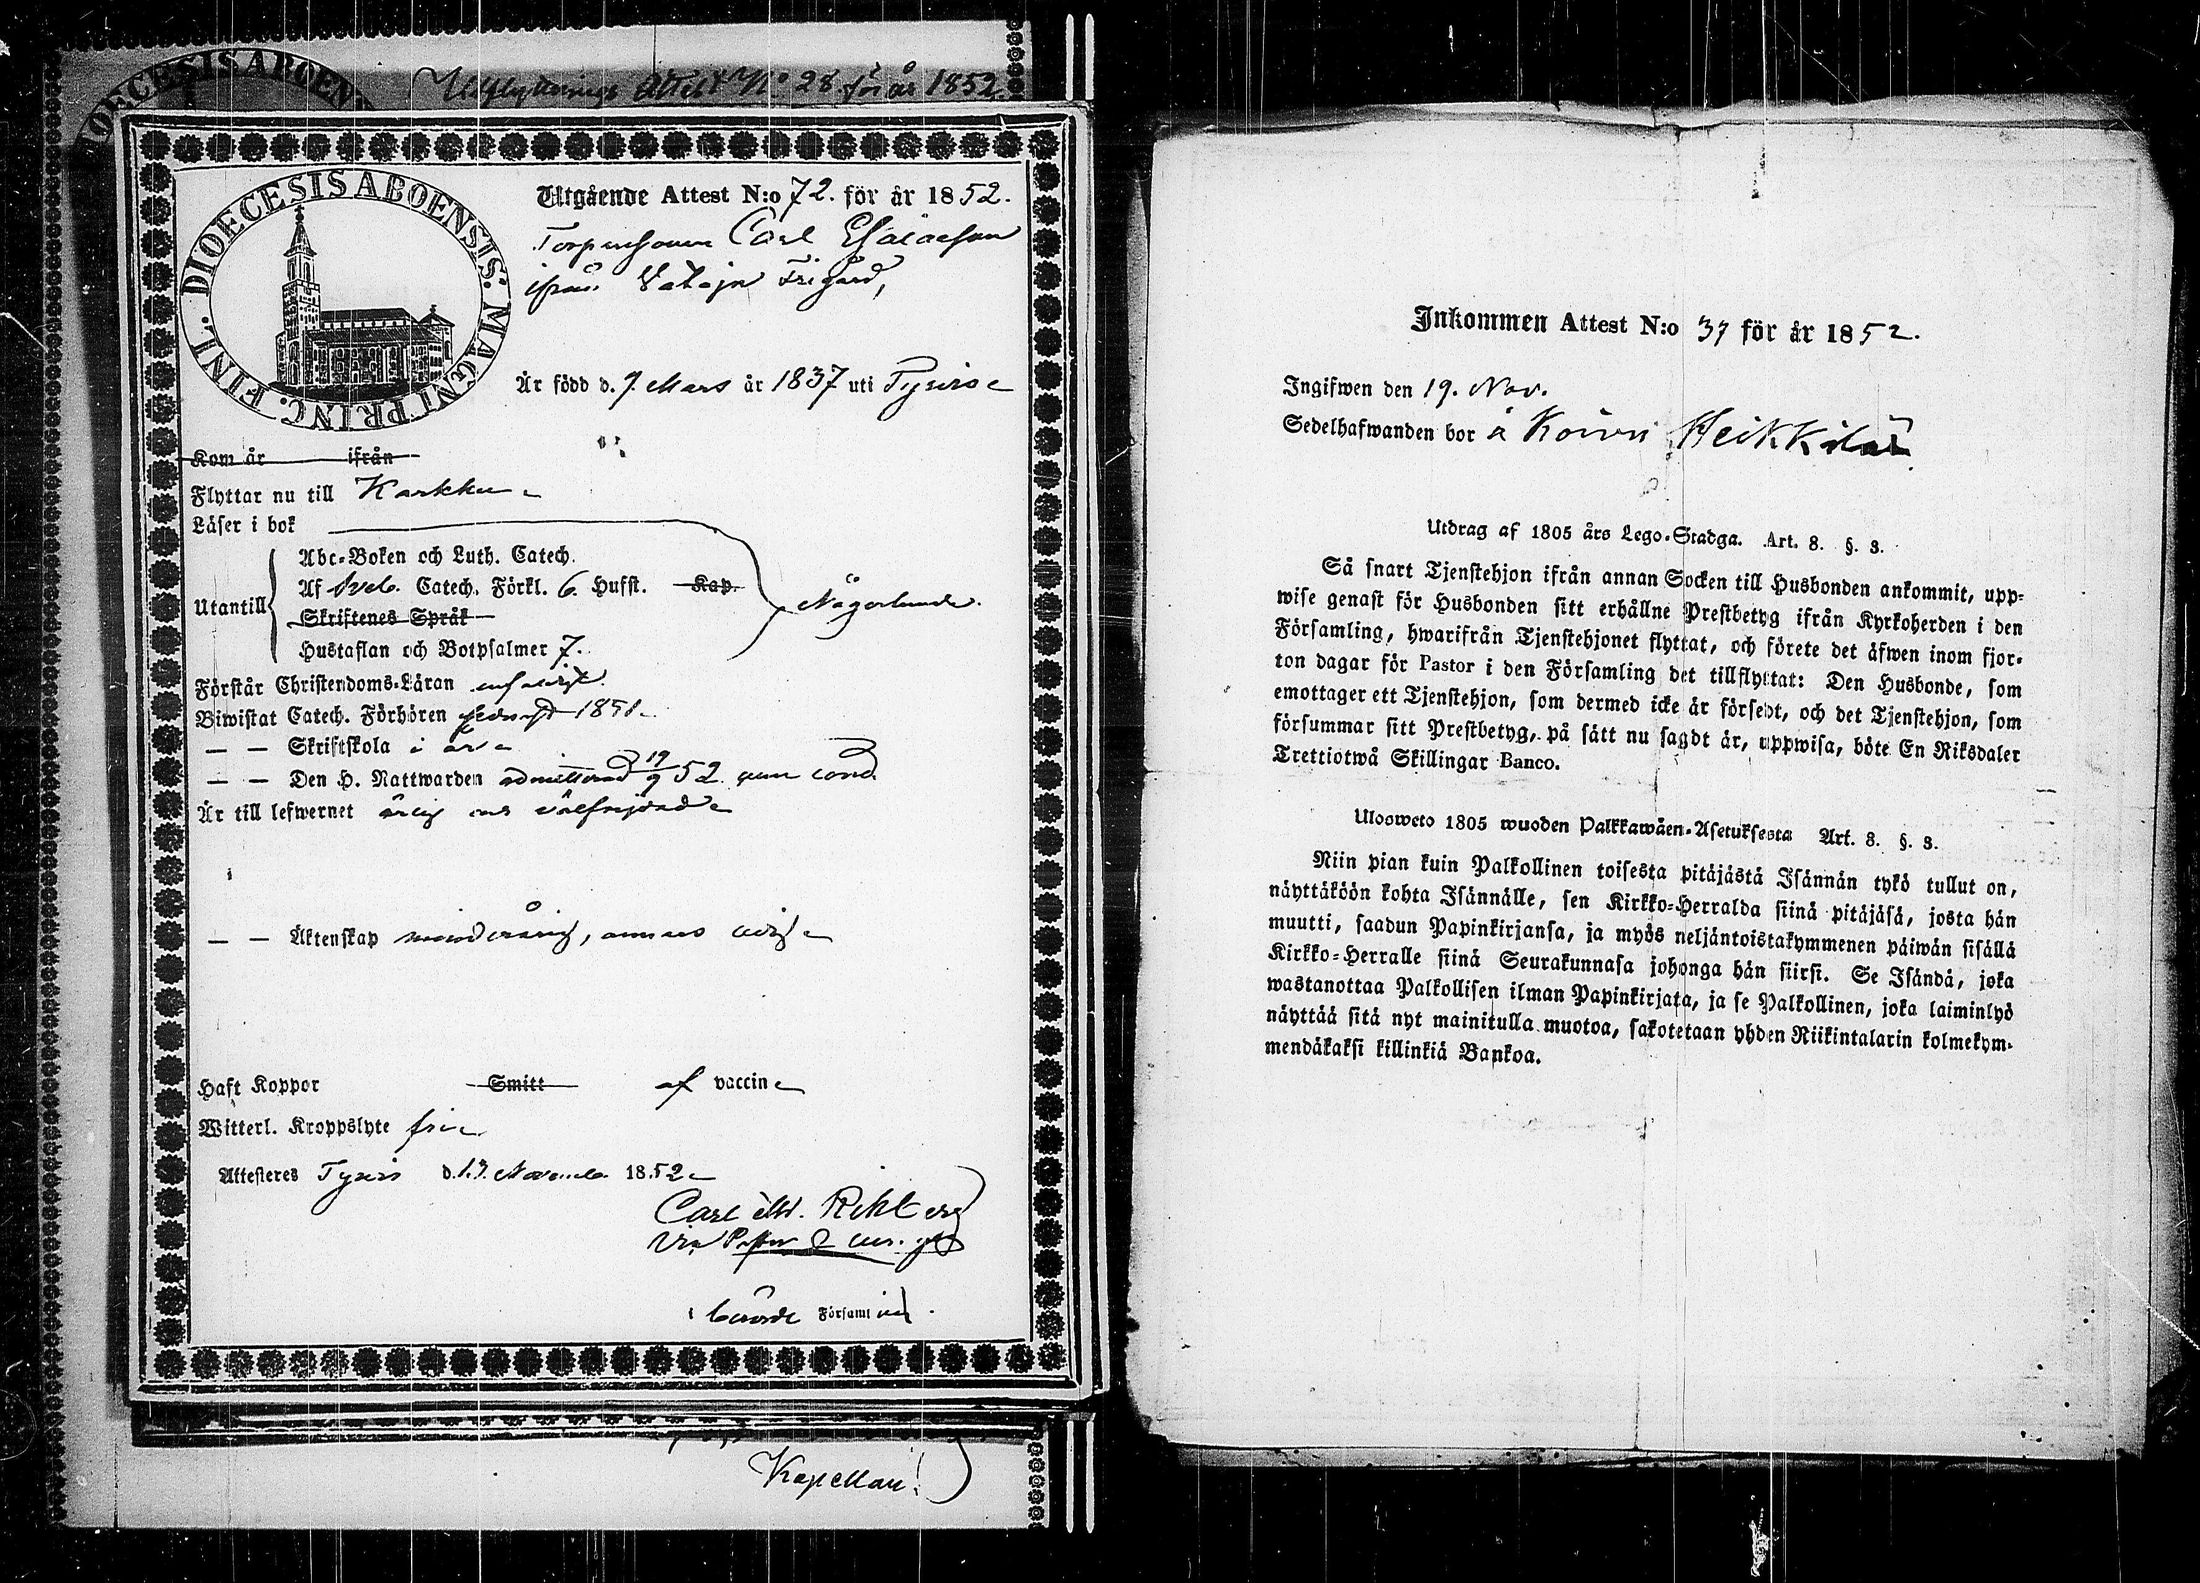 Utflyttnings Attest No 28 för år 1852.
DIOECESIS ABOENSIS. MAGNI PRINC. FINL.
Utgående Attest N:o 72. för år 1852.
Torparesonen Carl Esaiasson
ifrån Vatajn Frigård,
Är född d. 9 Mars år 1837 uti Tyrvis
Kom år ifrån
Flyttar nu till Karkku
Läser i bok
Utantill
Abc-Boken och Luth. Catech.
Af Sveb. Catech. Förkl. 6. Hufst. Kap.
Skriftenes Språk
Hustaflan och Botpsalmer 7.
Någorlunda.
Förstår Christendoms-Läran enfaldigt
Biwistat Catech. Förhören 1851.
— — Skriftskola i år
— — Den H. Nattwarden admitterad 19/9 52
Är till lefwernet ärlig och välfrejdad
— — Äktenskap minderårig, annars ledig
Haft Koppor Smitt af vaccin
Witterl. Kroppslyte fri
Attesteres Tyrvis d. 13 November 1852
Carl
i berörde Församling.
Kapellan.
Inkommen Attest N:o 37 för år 1852.
Ingifwen den 19. Nov.
Sedelhafwanden bor å Koivu Heikkilä
Utdrag af 1805 års Lego-Stadga. Art. 8. §. 3.
Så snart Tjenstehjon ifrån annan Socken till Husbonden ankommit, upp-
wise genast för Husbonden sitt erhållne Prestbetyg ifrån Kyrkoherden i den
Församling, hwarifrån Tjenstehjonet flyttat, och förete det äfwen inom fjor-
ton dagar för Pastor i den Församling det tillflyttat: Den Husbonde, som
emottager ett Tjenstehjon, som dermed icke är försedt, och det Tjenstehjon, som
försummar sitt Prestbetyg, på sätt nu sagdt är, uppwisa, böte En Riksdaler
Trettiotwå Skillingar Banco.
Ulosweto 1805 wuoden Palkkawäen-Asetuksesta Art. 8. §. 3.
Niin pian kuin Palkollinen toisesta pitäjästä Isännän tykö tullut on,
näyttäköön kohta Isännälle, sen Kirkko-Herralda siinä pitäjäsä, josta hän
muutti, saadun Papinkirjansa, ja myös neljäntoistakymmenen päiwän sisällä
Kirkko-Herralle siinä Seurakunnasa johonga hän siirsi. Se Isändä, joka
wastanottaa Palkollisen ilman Papinkirjata, ja se Palkollinen, joka laiminlyö
näyttää sitä nyt mainitulla muotoa, sakotetaan yhden Riikintalarin kolmekym-
mendäkaksi killinkiä Bankoa.